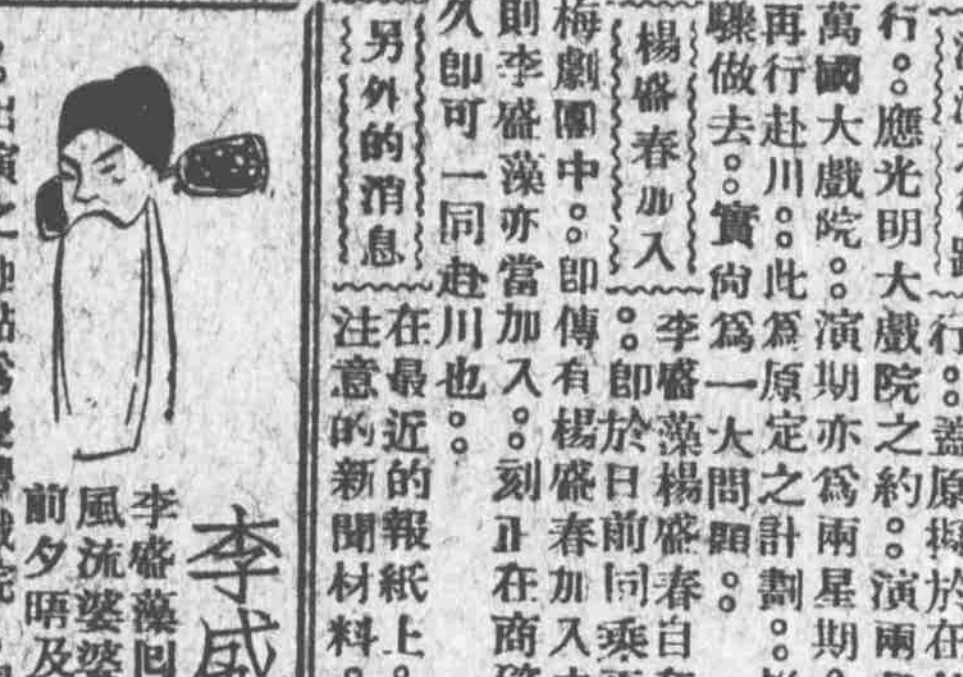 行。蓋原擬於在
行。應光明大戲院之約。演兩
萬國大戲院。演期亦爲兩星期。
再行赴川。此爲原定之計劃。
驟做去。實尙爲一大問題。
楊盛春加入
李盛藻楊盛春自
。即於日前同乘
梅劇團中。即傳有楊盛春加入
則李盛藻亦當加入。刻正在商
久即可一同赴川也。
另外的消息
在最近的報紙上。
注意的新聞材料。
李盛
李盛藻囘
風流婆婆
前夕晤及
出演之